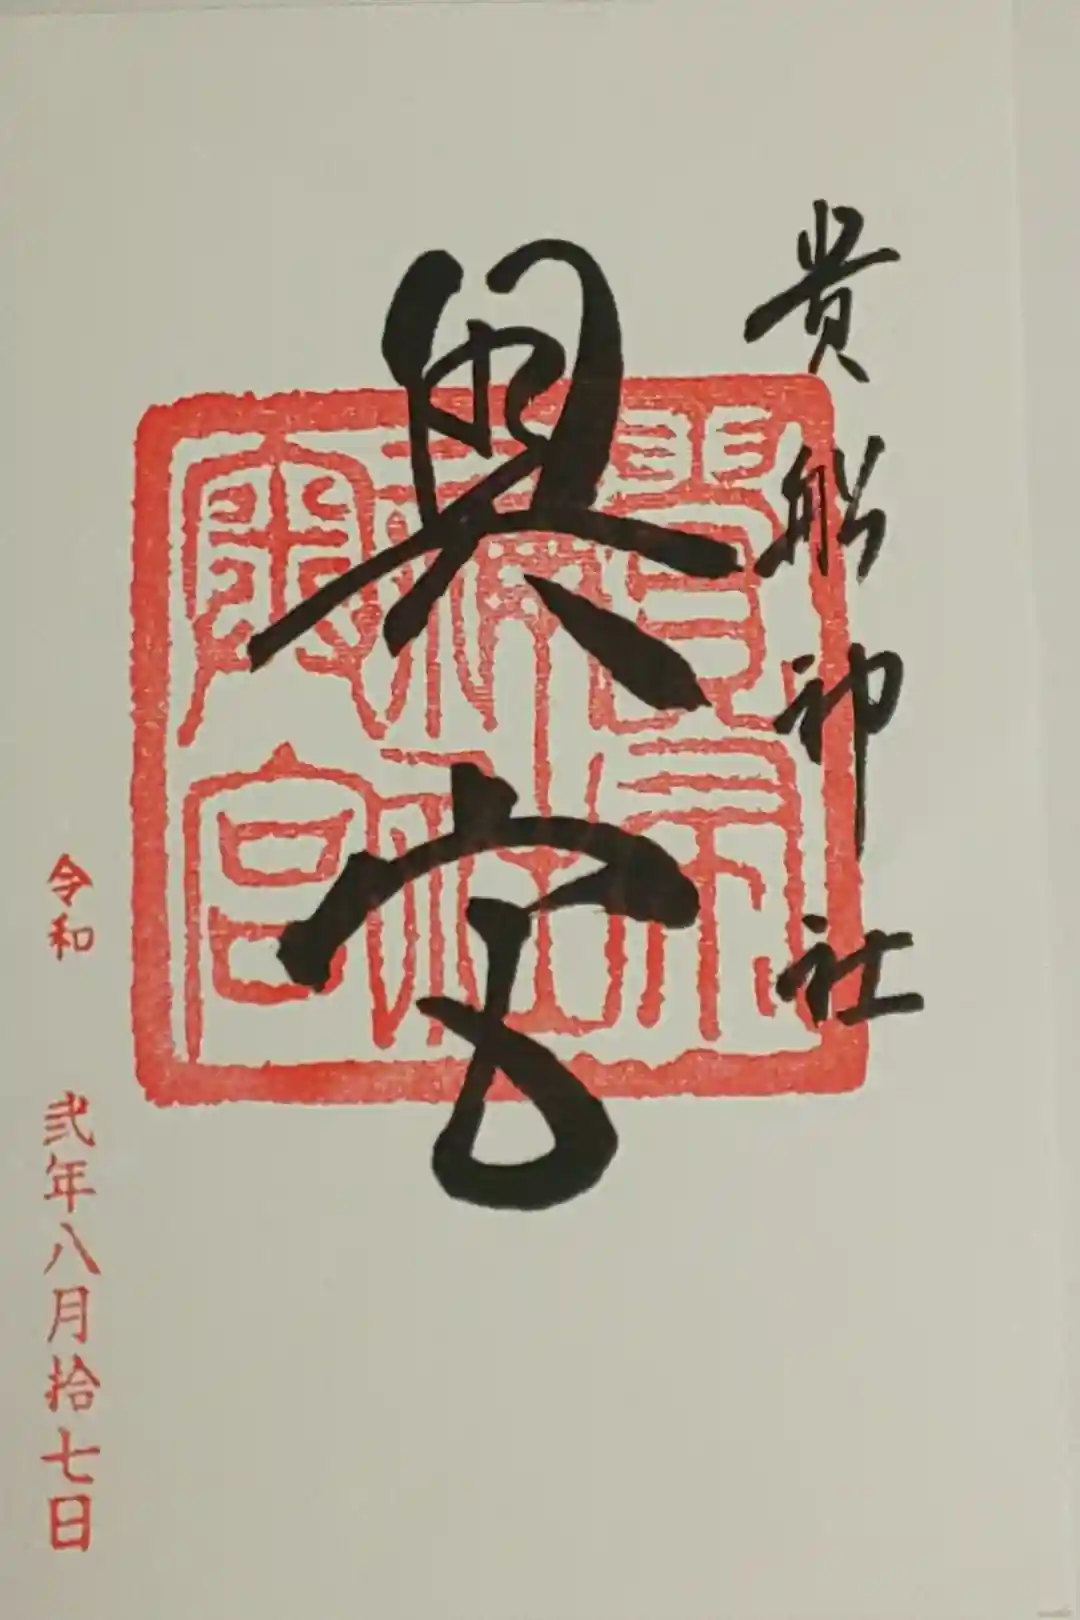 貴船神社
奥宮
貴布祢社奥宮
令和 弐年八月拾七日